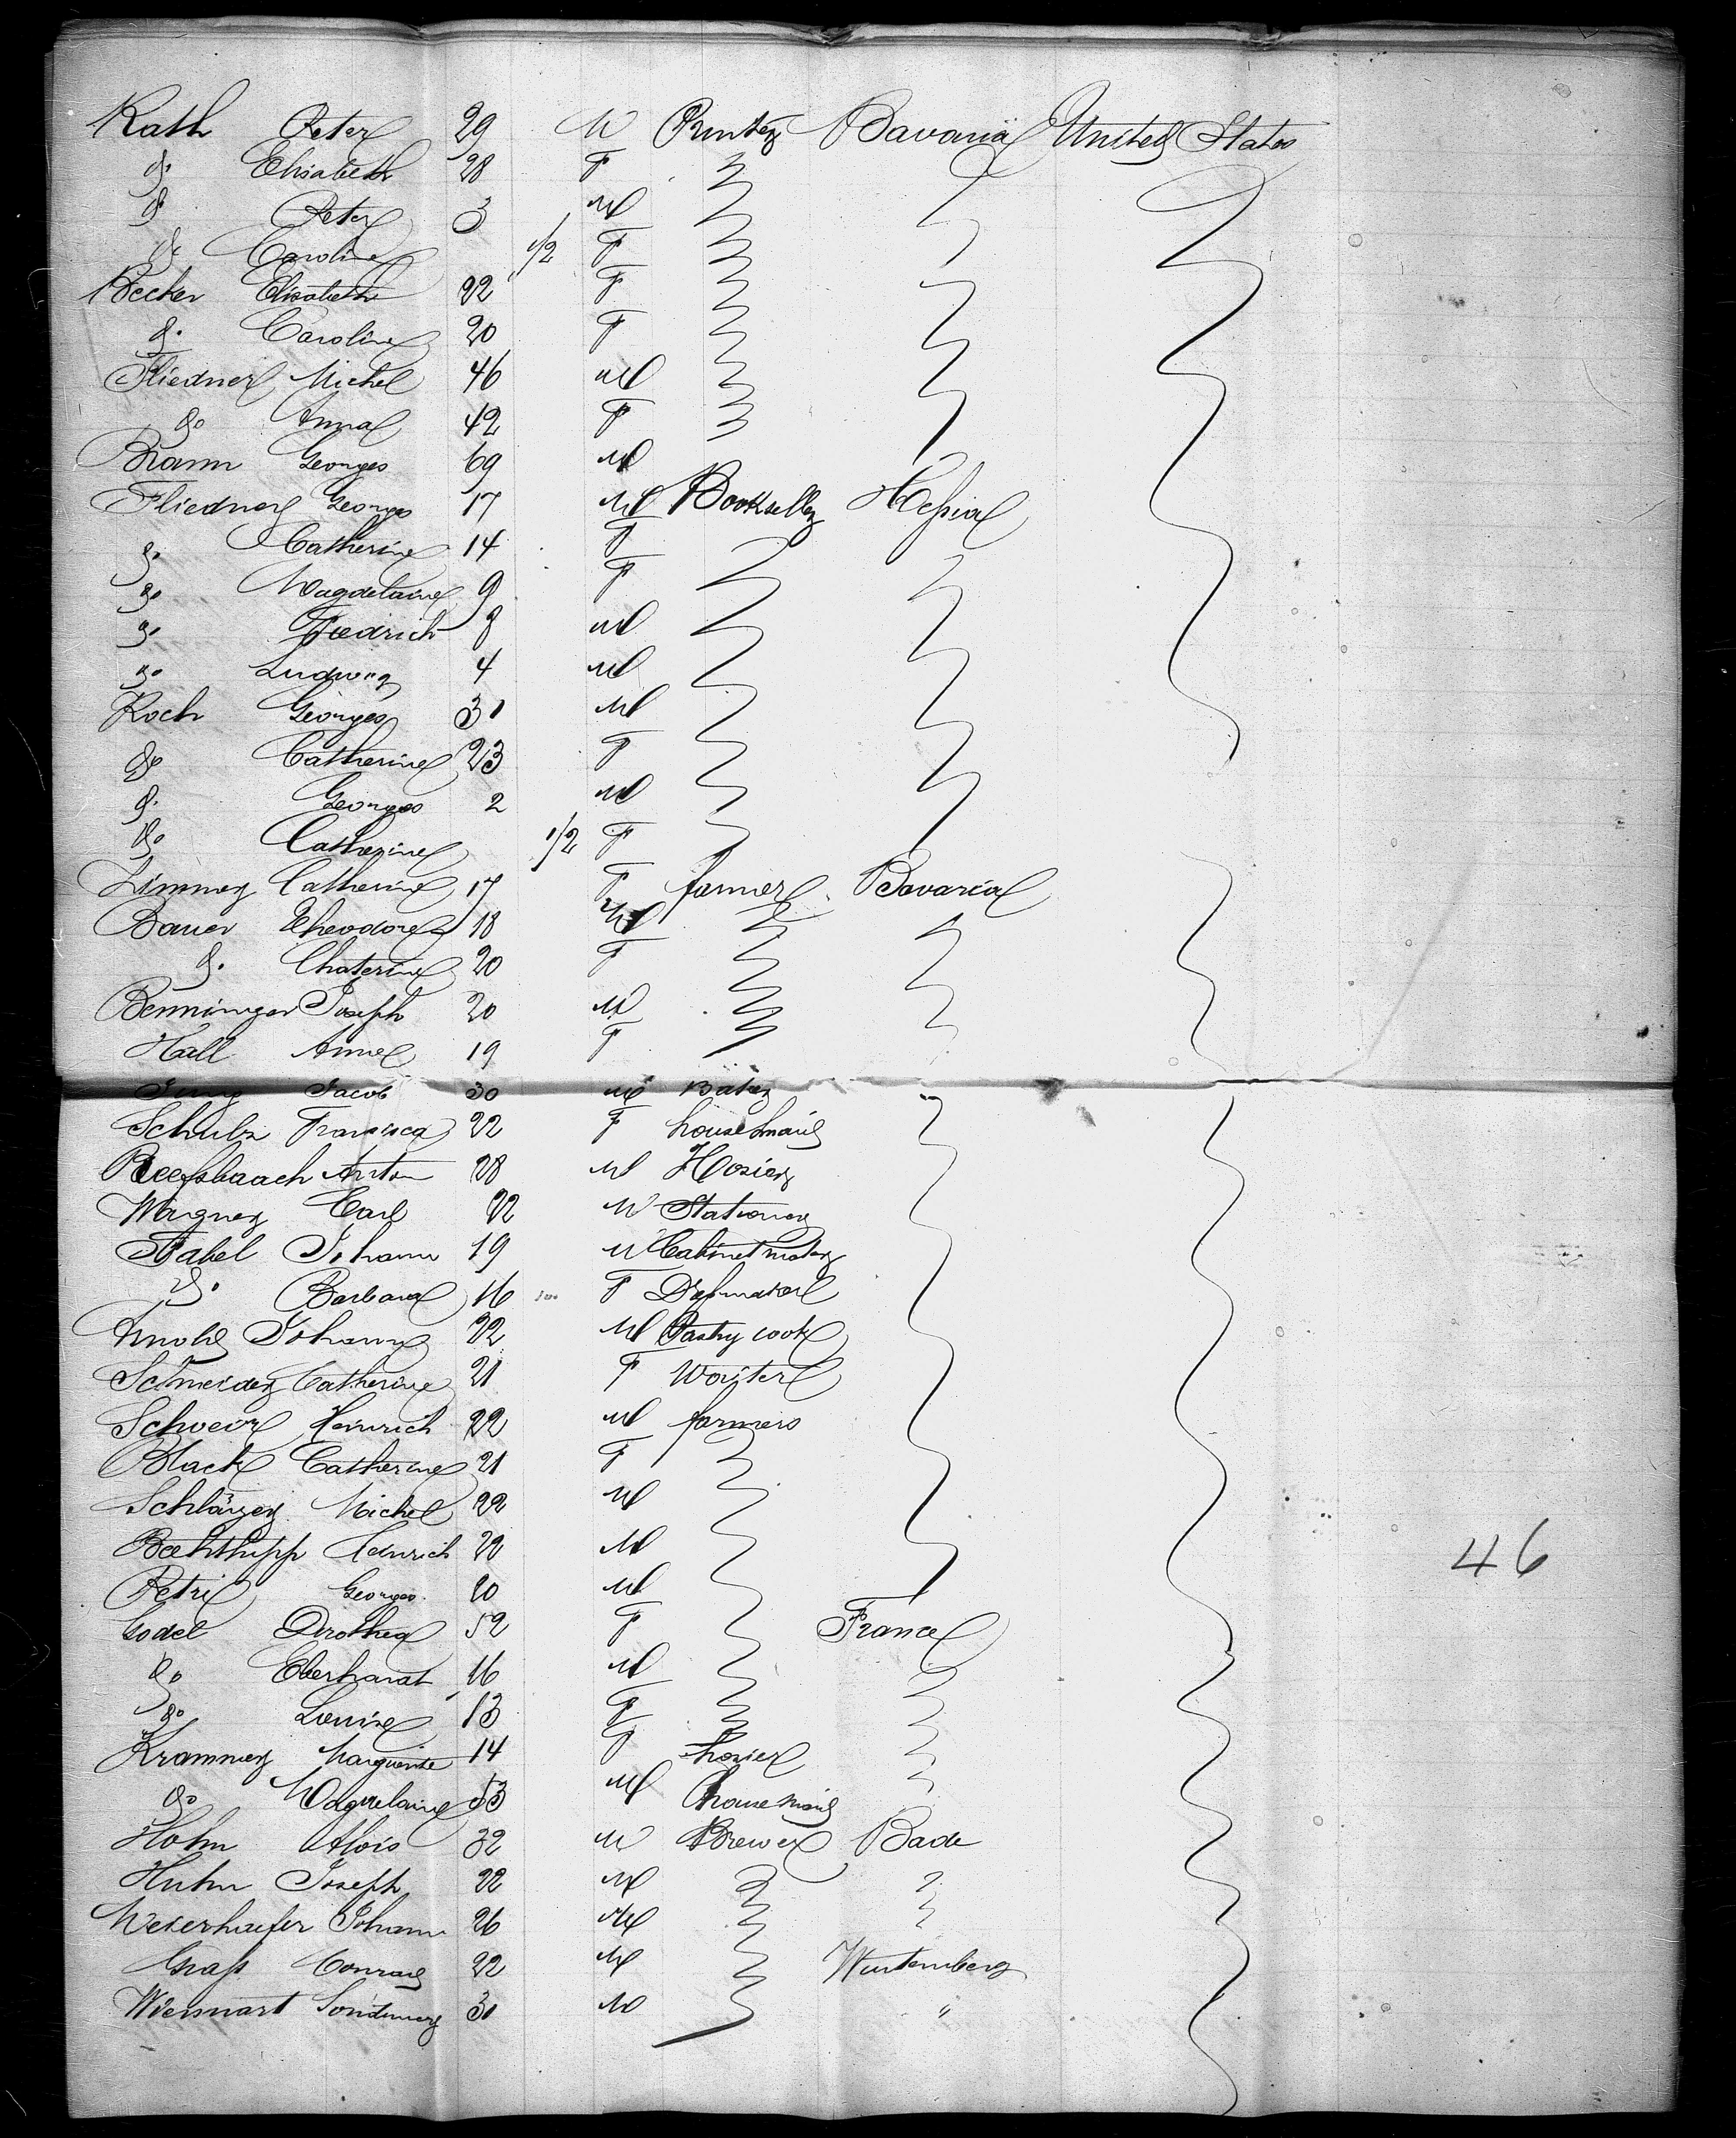 Rath Peter 29 M Printer Bavaria United States
do Elisabeth 28 F
do Peter 3 M
do Caroline 1/2 F
Becker Elisabeth 22 F
do Caroline 20 F
Fliedner Michel 46 M
do Anna 42 F
Bramm Georges 69 M
Fliedner Georges 17 M Bookseller Hessia
do Catherine 14 F
do Magdelaine 9 F
do Friedrich 8 M
do Ludwig 4 M
Koch Georges 31 M
do Catherine 23 F
do Georges 2 M
do Catherine 1/2 F
Zimmer Catherine 17 F farmer Bavaria
Bauer Theodore 18 M
do Chaterine 20 F
Benninger Joseph 20 M
Hall Anne 19 F
Jung Jacob 30 M Baker
Schulz Francisca 22 F housemaid
Anton 28 M Hosier
Wagner Carl 22 M Stationer
Stabel Johann 19 M Cabinet maker
do Barbara 16 F
Arnold Johann 22 M Pastry cook
Schneider Catherine 21 F Woister
Schweir Heinrich 22 M farmers
Black Catherine 21 F
Michel 22 M
Heinrich 22 M
Petri Georges 20 M
Godel Dorothea 52 F France
do Eberhardt 16 M
do Louise 13 F
Krammer Marguerite 14 F hosier
do Magdelaine 53 M housemaid
Hohn Alois 32 M Brewer Bade
Huhn Joseph 22 M
Johann 26 M
Grass Conrad 22 M Wurtemberg
30 M "
46